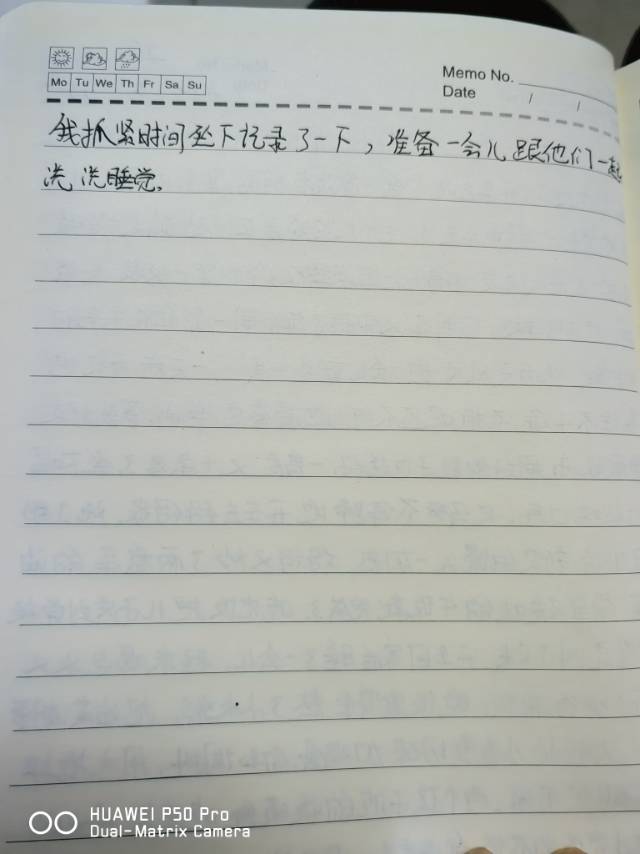 Memo No.
Mo Tu We Th Fr Sa Su
Date / /
我抓紧时间坐下记录了一下，准备一会儿跟他们一起
洗洗睡觉.
HUAWEI P50 Pro
Dual-Matrix Camera